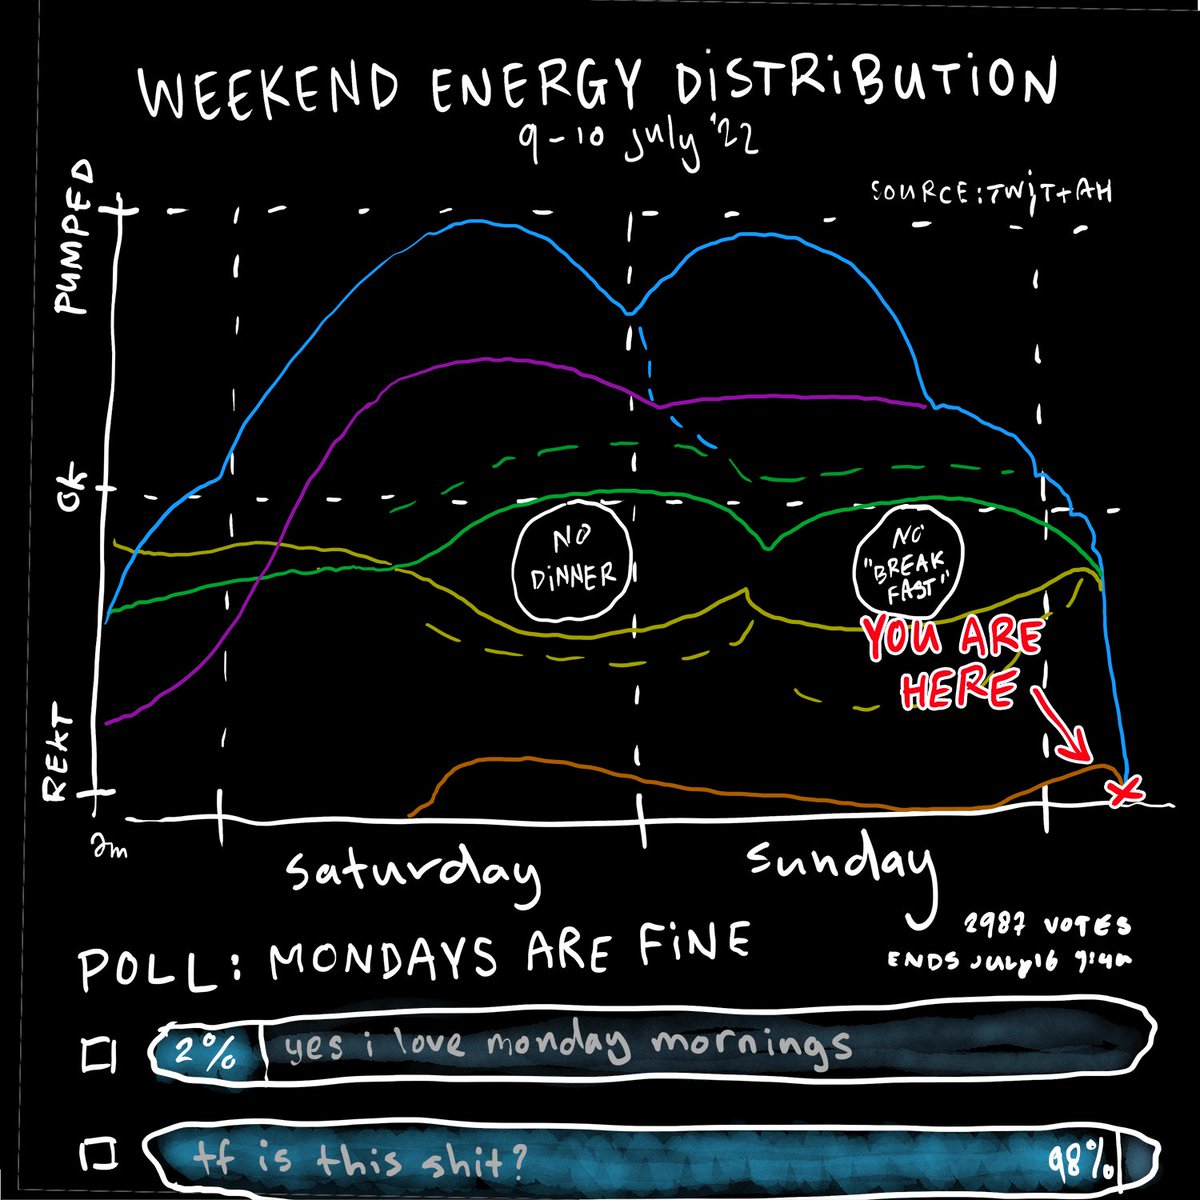 WEEKEND ENERGY DiSTRiBUTiON
9-10 july '22
SOURCE: TWiT+AH
PUMPED
Ok
REKT
NO
DiNNER
NO
"BREAK
FAST"
YOU ARE
HERE
saturday
sunday
POLL: MONDAYS ARE FiNE
2987 VOTES
ENDS July 16
2% yes i love monday mornings
tf is this shit? 98%